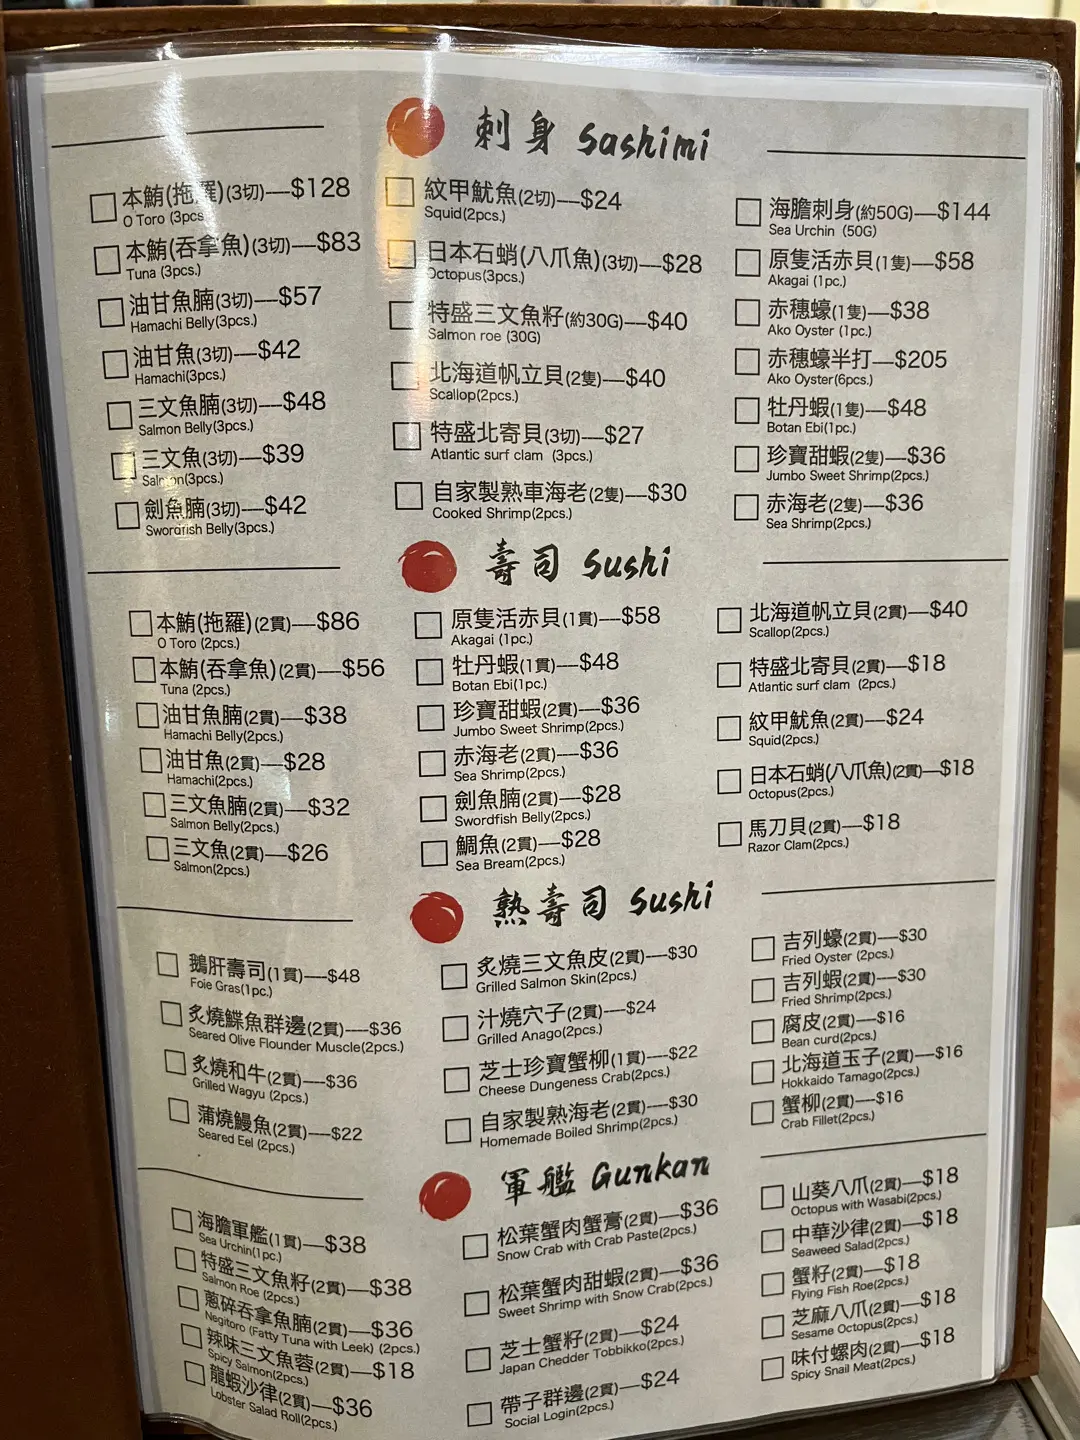 刺身 Sashimi
本鮪(拖羅)(3切)—$128
O Toro (3pcs
本鮪(吞拿魚)(3切)—$83
Tuna (3pcs.)
油甘魚腩(3切)—$57
Hamachi Belly(3pcs.)
油甘魚(3切)—$42
Hamachi(3pcs.)
三文魚腩(3切)—$48
Salmon Belly(3pcs.)
三文魚(3切)—$39
Salmon(3pcs.)
劍魚腩(3切)—$42
Swordfish Belly(3pcs.)
紋甲魷魚(2切)—$24
Squid(2pcs.)
日本石蛸(八爪魚)(3切)—$28
Octopus(3pcs.)
特盛三文魚籽(約30G)—$40
Salmon roe (30G)
北海道帆立貝(2隻)—$40
Scallop(2pcs.)
特盛北寄貝(3切)—$27
Atlantic surf clam (3pcs.)
自家製熟車海老(2隻)—$30
Cooked Shrimp(2pcs.)
海膽刺身(約50G)—$144
Sea Urchin (50G)
原隻活赤貝(1隻)—$58
Akagai (1pc.)
赤穗蠔(1隻)—$38
Ako Oyster (1pc.)
赤穗蠔半打—$205
Ako Oyster(6pcs.)
牡丹蝦(1隻)—$48
Botan Ebi(1pc.)
珍寶甜蝦(2隻)—$36
Jumbo Sweet Shrimp(2pcs.)
赤海老(2隻)—$36
Sea Shrimp(2pcs.)
壽司 Sushi
本鮪(拖羅)(2貫)—$86
O Toro (2pcs.)
本鮪(吞拿魚)(2貫)—$56
Tuna (2pcs.)
油甘魚腩(2貫)—$38
Hamachi Belly(2pcs.)
油甘魚(2貫)—$28
Hamachi(2pcs.)
三文魚腩(2貫)—$32
Salmon Belly(2pcs.)
三文魚(2貫)—$26
Salmon(2pcs.)
原隻活赤貝(1貫)—$58
Akagai (1pc.)
牡丹蝦(1貫)—$48
Botan Ebi(1pc.)
珍寶甜蝦(2貫)—$36
Jumbo Sweet Shrimp(2pcs.)
赤海老(2貫)—$36
Sea Shrimp(2pcs.)
劍魚腩(2貫)—$28
Swordfish Belly(2pcs.)
鯛魚(2貫)—$28
Sea Bream(2pcs.)
北海道帆立貝(2貫)—$40
Scallop(2pcs.)
特盛北寄貝(2貫)—$18
Atlantic surf clam (2pcs.)
紋甲魷魚(2貫)—$24
Squid(2pcs.)
日本石蛸(八爪魚)(2貫)—$18
Octopus(2pcs.)
馬刀貝(2貫)—$18
Razor Clam(2pcs.)
熟壽司 Sushi
鵝肝壽司(1貫)—$48
Foie Gras(1pc.)
炙燒鰈魚群邊(2貫)—$36
Seared Olive Flounder Muscle(2pcs.)
炙燒和牛(2貫)—$36
Grilled Wagyu (2pcs.)
蒲燒鰻魚(2貫)—$22
Seared Eel (2pcs.)
炙燒三文魚皮(2貫)—$30
Grilled Salmon Skin(2pcs.)
汁燒穴子(2貫)—$24
Grilled Anago(2pcs.)
芝士珍寶蟹柳(1貫)—$22
Cheese Dungeness Crab(2pcs.)
自家製熟海老(2貫)—$30
Homemade Boiled Shrimp(2pcs.)
吉列蠔(2貫)—$30
Fried Oyster (2pcs.)
吉列蝦(2貫)—$30
Fried Shrimp(2pcs.)
腐皮(2貫)—$16
Bean curd(2pcs.)
北海道玉子(2貫)—$16
Hokkaido Tamago(2pcs.)
蟹柳(2貫)—$16
Crab Fillet(2pcs.)
軍艦 Gunkan
海膽軍艦(1貫)—$38
Sea Urchin(1pc.)
特盛三文魚籽(2貫)—$38
Salmon Roe (2pcs.)
蔥碎吞拿魚腩(2貫)—$36
Negitoro (Fatty Tuna with Leek) (2pcs.)
辣味三文魚蓉(2貫)—$18
Spicy Salmon(2pcs.)
龍蝦沙律(2貫)—$36
Lobster Salad Roll(2pcs.)
松葉蟹肉蟹膏(2貫)—$36
Snow Crab with Crab Paste(2pcs.)
松葉蟹肉甜蝦(2貫)—$36
Sweet Shrimp with Snow Crab(2pcs.)
芝士蟹籽(2貫)—$24
Japan Chedder Tobbikko(2pcs.)
帶子群邊(2貫)—$24
Social Login(2pcs.)
山葵八爪(2貫)—$18
Octopus with Wasabi(2pcs.)
中華沙律(2貫)—$18
Seaweed Salad(2pcs.)
蟹籽(2貫)—$18
Flying Fish Roe(2pcs.)
芝麻八爪(2貫)—$18
Sesame Octopus(2pcs.)
味付螺肉(2貫)—$18
Spicy Snail Meat(2pcs.)